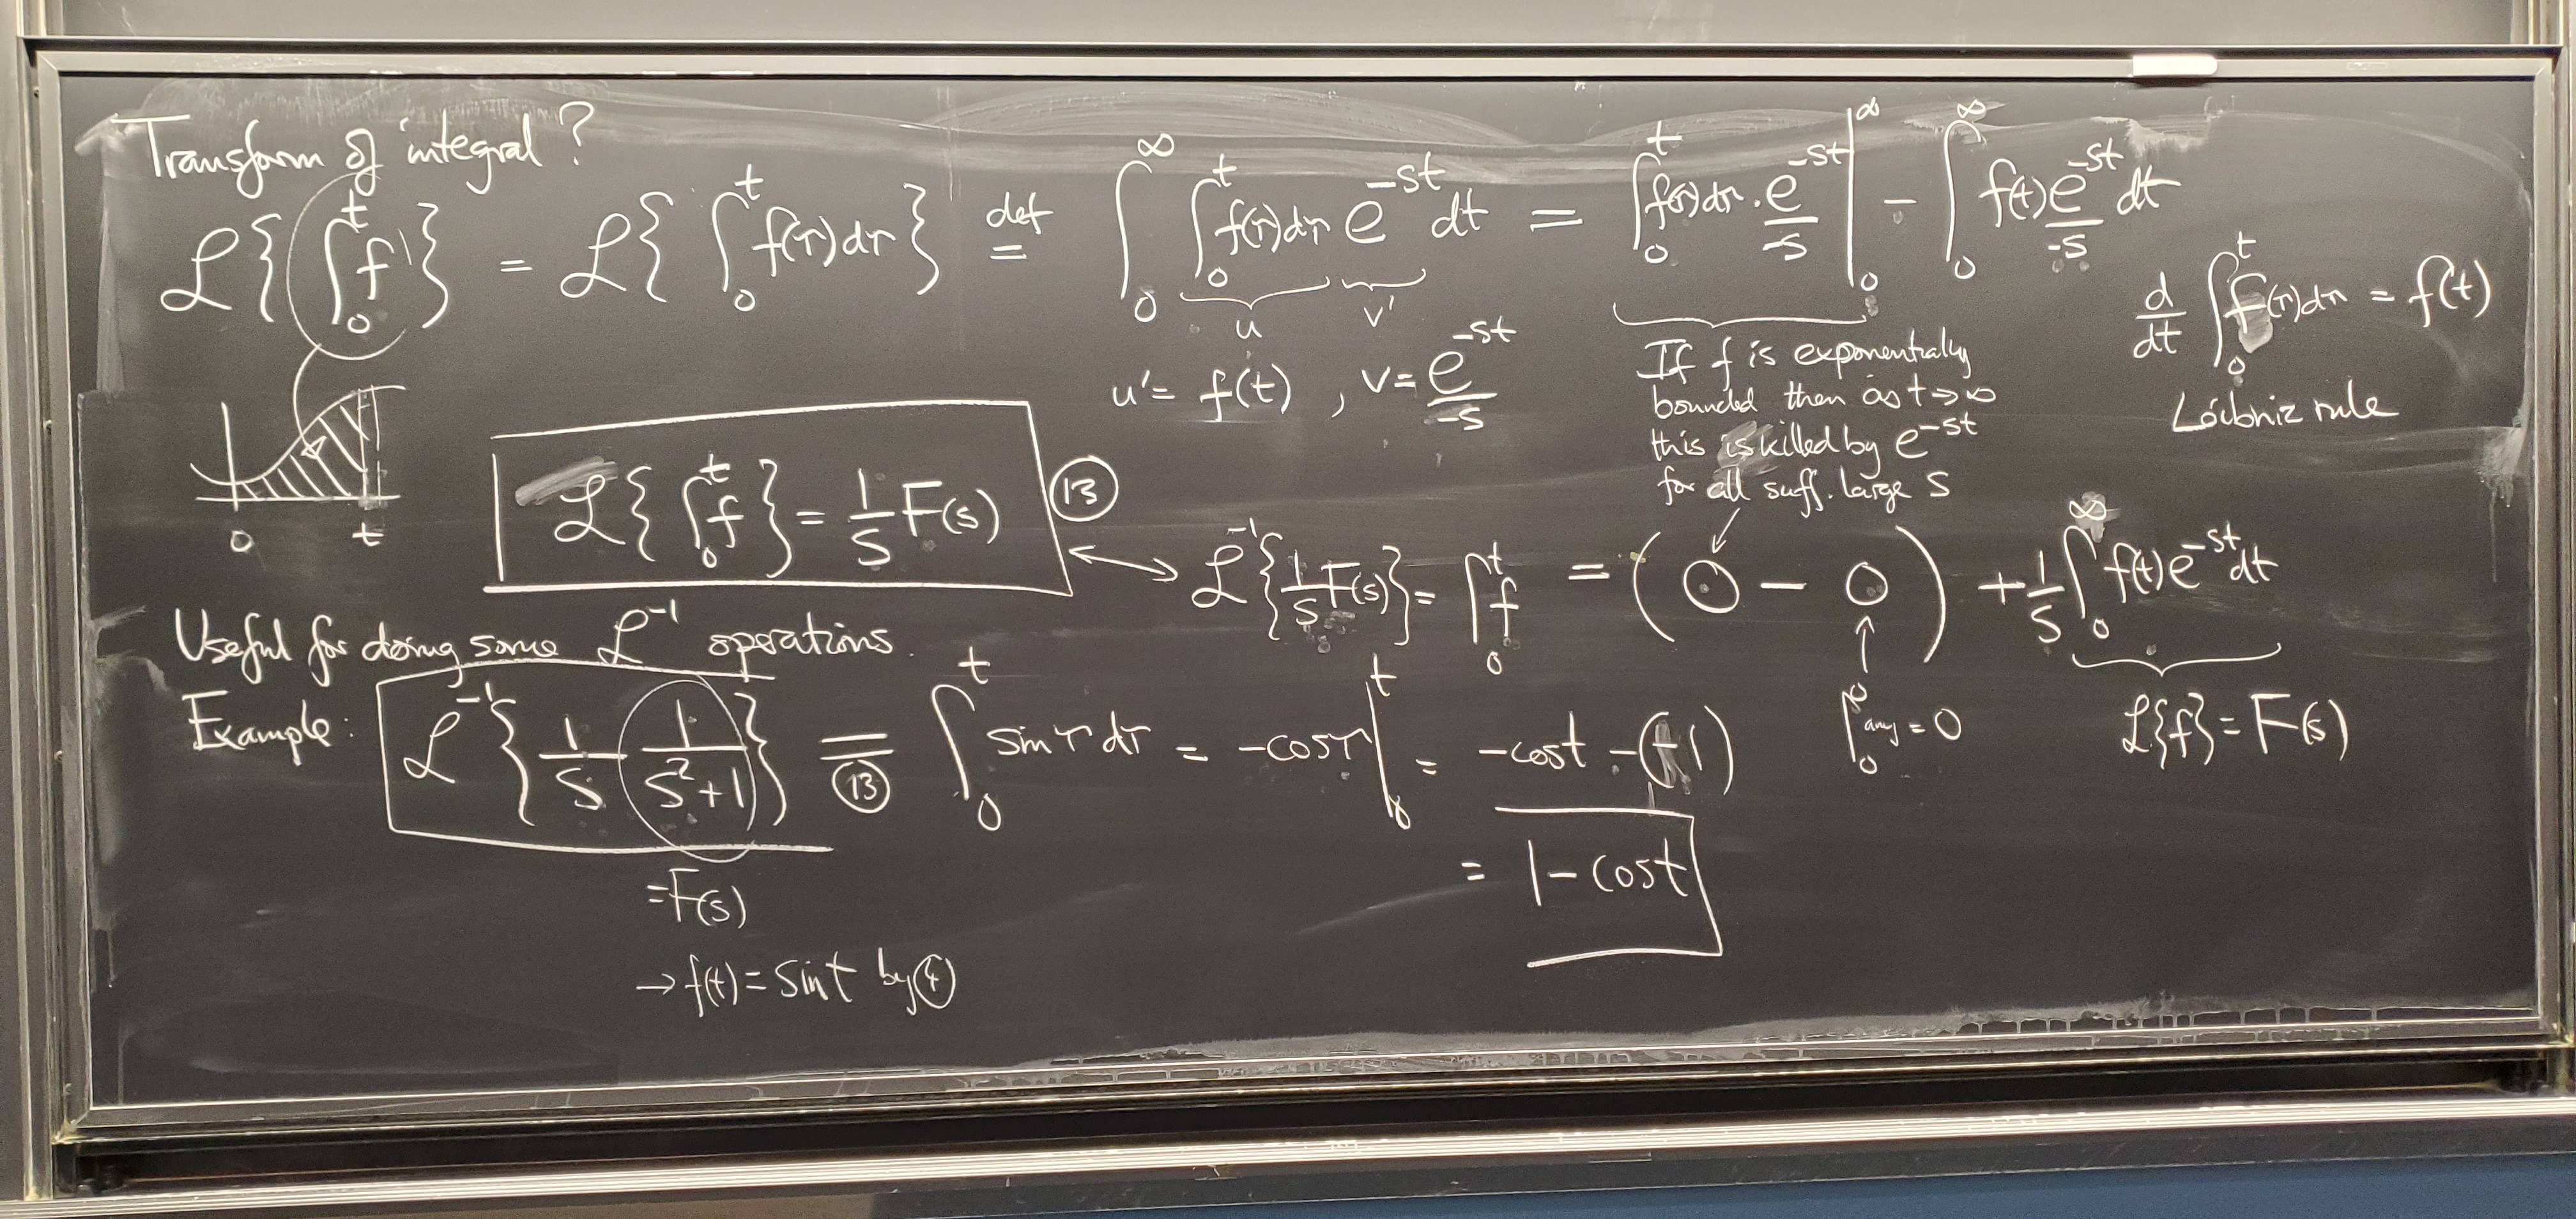 Transform of integral?
ℒ{∫₀ᵗ f} = ℒ{∫₀ᵗ f(τ)dτ} def= ∫₀^∞ ∫₀ᵗ f(τ)dτ e^{-st} dt = ∫₀ᵗ f(τ)dτ · e^{-st}/-s |₀^∞ - ∫₀^∞ f(t) e^{-st}/-s dt
u v'
u' = f(t), v = e^{-st}/-s
If f is exponentially
bounded then as t→∞
this is killed by e^{-st}
for all suff. large s
d/dt ∫₀ᵗ f(τ)dτ = f(t)
Leibniz rule
0 t
ℒ{∫₀ᵗ f} = 1/s F(s) (13)
↔ ℒ^{-1}{1/s F(s)} = ∫₀ᵗ f
= (0 - 0) + 1/s ∫₀^∞ f(t)e^{-st}dt
∫₀⁰ any = 0
ℒ{f} = F(s)
Useful for doing some ℒ^{-1} operations.
Example: ℒ^{-1}{1/s 1/(s²+1)} =(13) ∫₀ᵗ sinτ dτ = -cosτ|₀ᵗ = -cost -(-1)
= 1-cost
=F(s)
→ f(t) = sint by (4)